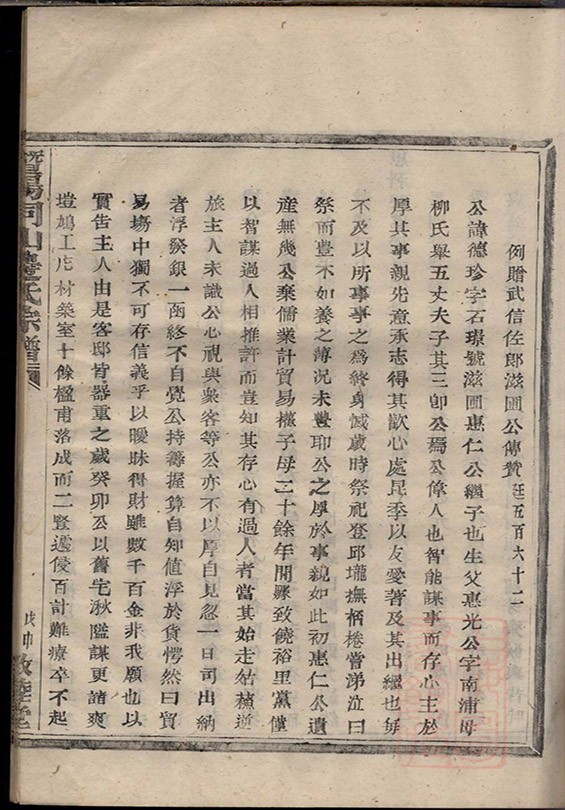 例贈武信佐郎滋圃公傳贊廷五百六十二
公諱德珍字石璟號滋圃惠仁公繼子也生父惠光公字南浦母
柳氏舉五丈夫子其三卽公焉公偉人也智能謀事而存心主於
厚其事親先意承志得其歡心處昆季以友愛著及其出繼也每
不及以所事事之爲終身憾歲時祭祀登邱壠撫柄棬嘗涕泣曰
祭而豊不如養之薄况未豊耶公之厚於事親如此初惠仁公遺
產無幾公棄儒業計貿易權子母三十餘年間驟致饒裕里黨僅
以智謀過人相推許而豈知其存心有過人者當其始走姑蘓逆
旅主人未識公心視與衆客等公亦不以厚自見忽一日司出納
者浮發銀一函終不自覺公持籌握算自知值浮於貨愕然曰貿
易塲中獨不可存信義乎以曖昧得財雖數千百金非我願也以
實告主人由是客邸皆器重之歲癸卯公以舊宅湫隘謀更諸爽
塏鳩工庀材築室十餘楹甫落成而二豎遞侵百計難療卒不起
暨陽同山邊氏宗譜
戊申 敦睦堂